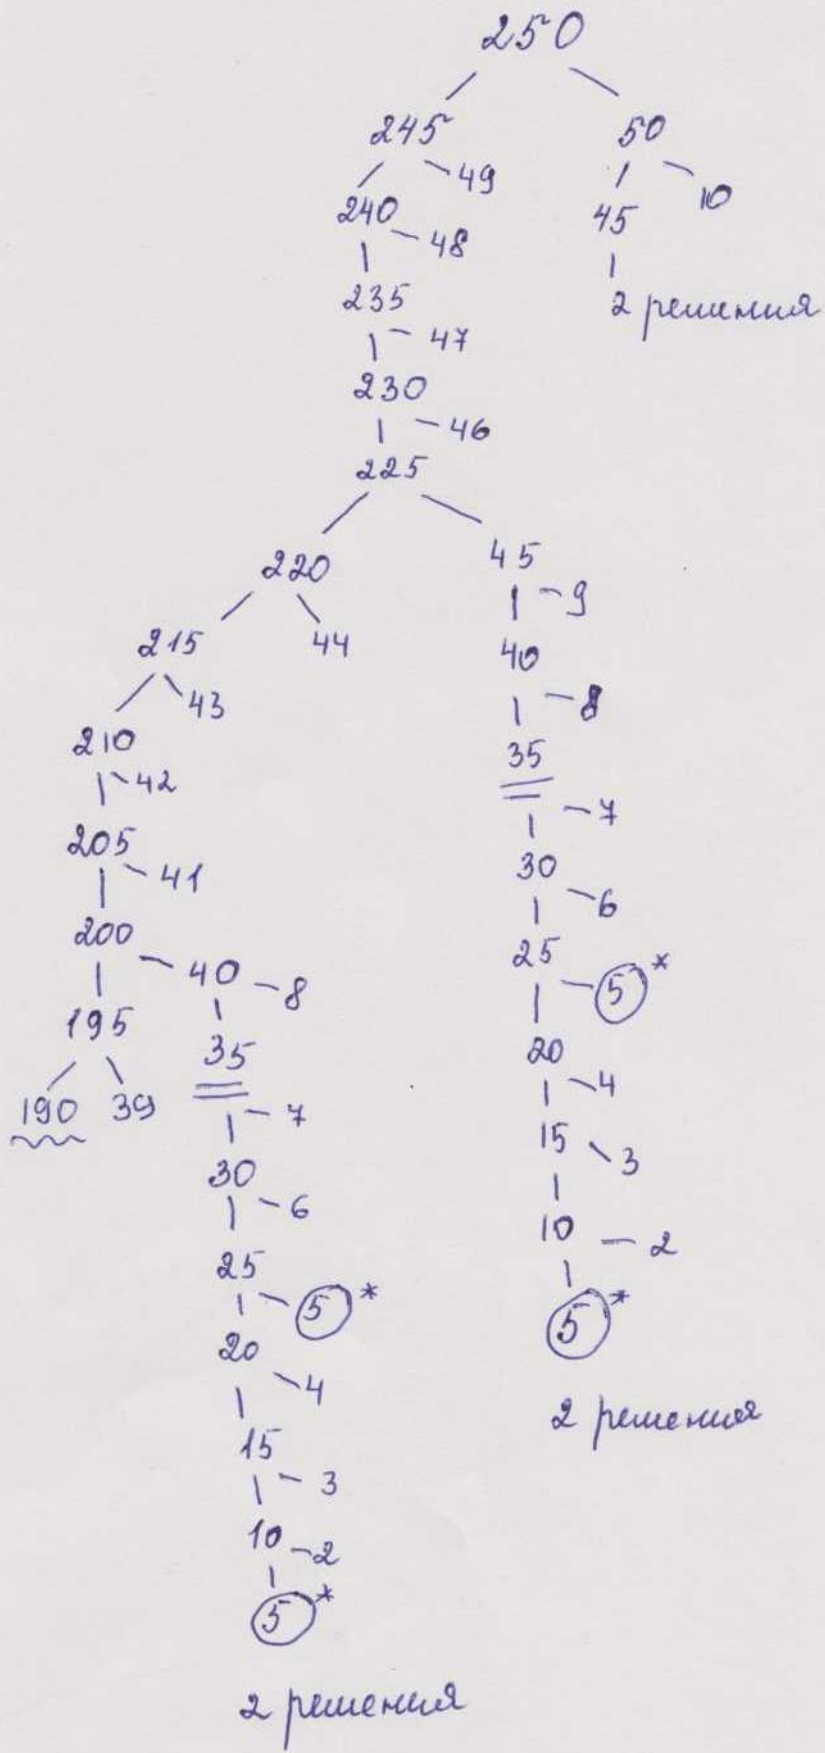 250
245 50
49 10
240 45
48
235 2 решения
47
230
46
225
220 45
9
215 44 40
43 8
210 35
42 7
205 30
41 6
200 25
40 8 5*
195 35 20
4
190 39 7 15
3
30 10
6 2
25 5*
5*
20 2 решения
4
15
3
10
2
5*
2 решения